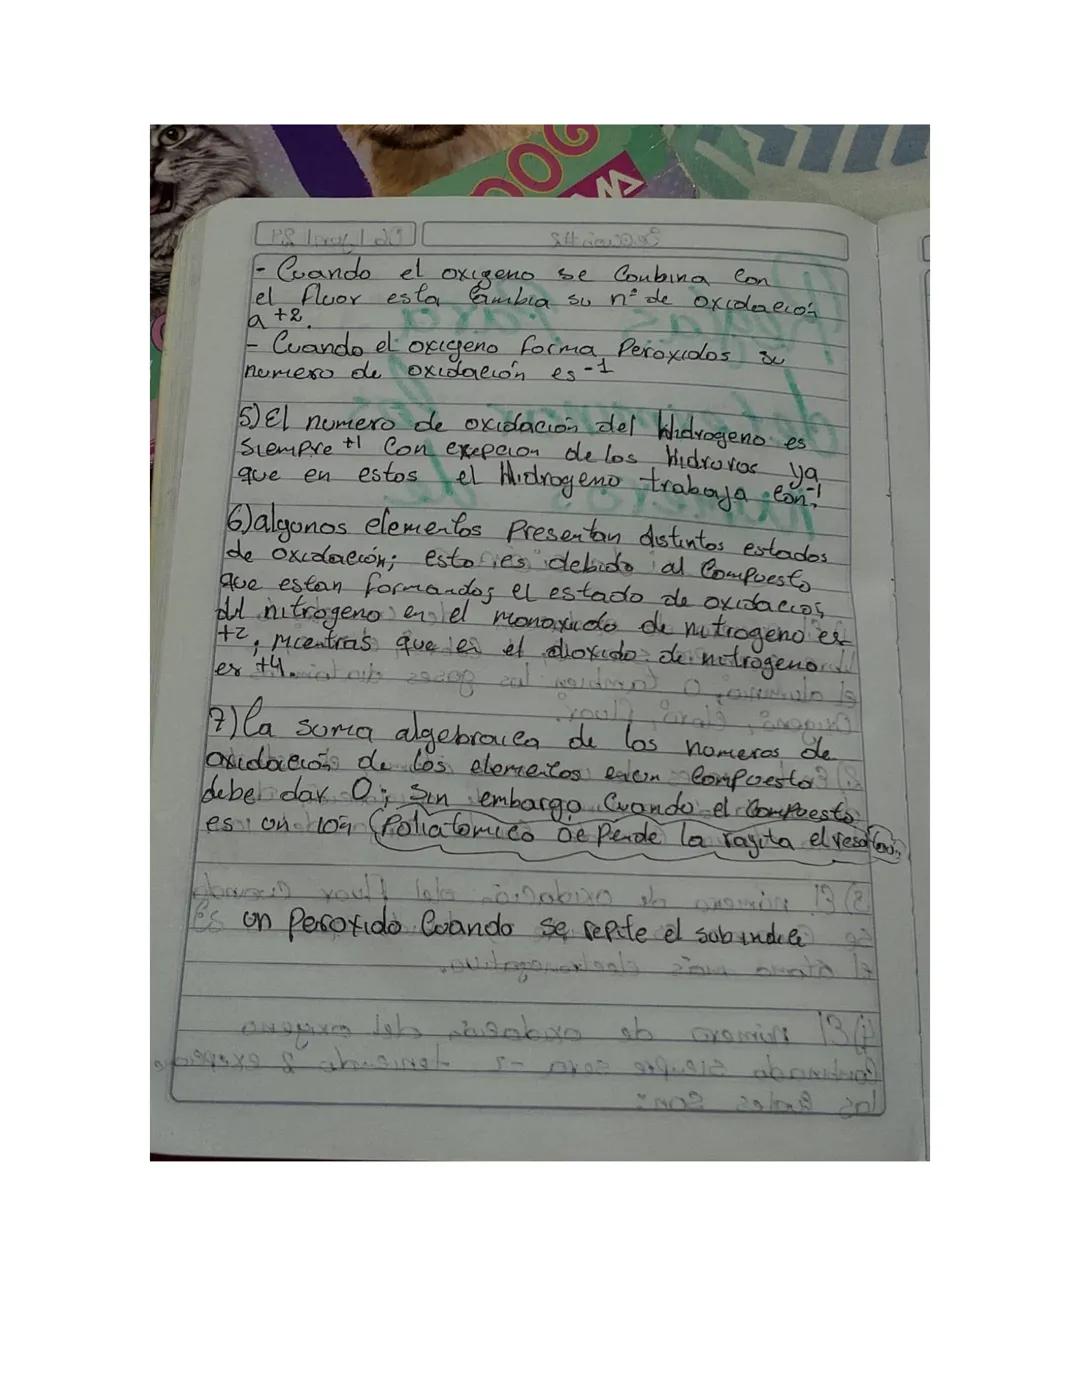 - Cuando el oxigeno se Conbina Con
el fluor esta Cambia su n° de oxidación
a +2.
- Cuando el oxigeno forma Peroxidos su
numero de oxidación es -1
5) El numero de oxidación del Hidrogeno es
siempre +1 Con exepcion de los Hidruros ya
que en estos el Hidrogeno trabaja Con -1
6) algunos elementos Presentan distintos estados
de oxidación; esto es debido al Compuesto
que estan formandos el estado de oxidacion
del nitrogeno en el monoxido de nitrogeno es
+2, mientras que en el dioxido de nitrogeno
es +4.
7) la suma algebraica de los numeros de
oxidación de los elementos en un Compuesto
debe dar 0; sin embargo Cuando el Compuesto
es un ión (Poliatomico De Pende la rayita el
Es un Peroxido Cuando se repite el subindice